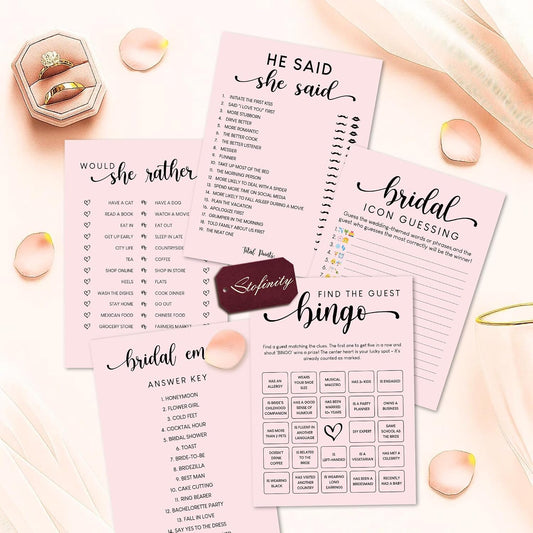 HE SAID
she said
1. INITIATE THE FIRST KISS
2. SAID "I LOVE YOU" FIRST
3. MORE STUBBORN
4. DRIVE BETTER
5. MORE ROMANTIC
6. THE BETTER COOK
7. THE BETTER LISTENER
8. MESSIER
9. FUNNIER
10. TAKE UP MOST OF THE BED
11. THE MORNING PERSON
12. MORE LIKELY TO DEAL WITH A SPIDER
13. SPEND MORE TIME ON SOCIAL MEDIA
14. MORE LIKELY TO FALL ASLEEP DURING A MOVIE
15. PLAN THE VACATION
16. APOLOGIZE FIRST
17. GRUMPIER IN THE MORNING
18. TOLD FAMILY ABOUT US FIRST
19. THE NEAT ONE
Total Points:
WOULD
she rather
HAVE A CAT HAVE A DOG
READ A BOOK WATCH A MOVIE
EAT IN EAT OUT
GET UP EARLY SLEEP IN LATE
CITY LIFE COUNTRYSIDE
TEA COFFEE
SHOP ONLINE SHOP IN STORE
HEELS FLATS
WASH THE DISHES COOK DINNER
STAY HOME GO OUT
MEXICAN FOOD CHINESE FOOD
GROCERY STORE FARMERS MARKET
bridal
ICON GUESSING
Guess the wedding-themed words or phrases, and the
guest who guesses the most correctly will be the winner!
1.
2.
3.
4.
5.
6.
7.
8.
Stofinity
FIND THE GUEST
bingo
Find a guest matching the clues. The first one to get five in a row and
shout 'BINGO' wins a prize! The center heart is your lucky spot – it's
already counted as marked.
HAS AN ALLERGY WEARS YOUR SHOE SIZE MUSICAL MAESTRO HAS 2+ KIDS IS ENGAGED
IS BRIDE'S CHILDHOOD COMPANION HAS A GOOD SENSE OF HUMOUR HAS BEEN MARRIED 10+ YEARS IS A PARTY PLANNER OWNS A BUSINESS
HAS MORE THAN 2 PETS IS FLUENT IN ANOTHER LANGUAGE DIY EXPERT SAME SCHOOL AS THE BRIDE
DOESN'T DRINK COFFEE IS RELATED TO THE BRIDE IS LEFT-HANDED IS A VEGETARIAN HAS MET A CELEBRITY
IS WEARING BLACK HAS VISITED ANOTHER COUNTRY IS WEARING LONG EARRINGS HAS BEEN A BRIDESMAID RECENTLY HAD A BABY
bridal em
ANSWER KEY
1. HONEYMOON
2. FLOWER GIRL
3. COLD FEET
4. COCKTAIL HOUR
5. BRIDAL SHOWER
6. TOAST
7. BRIDE-TO-BE
8. BRIDEZILLA
9. BEST MAN
10. CAKE CUTTING
11. RING BEARER
12. BACHELORETTE PARTY
13. FALL IN LOVE
14. SAY YES TO THE DRESS